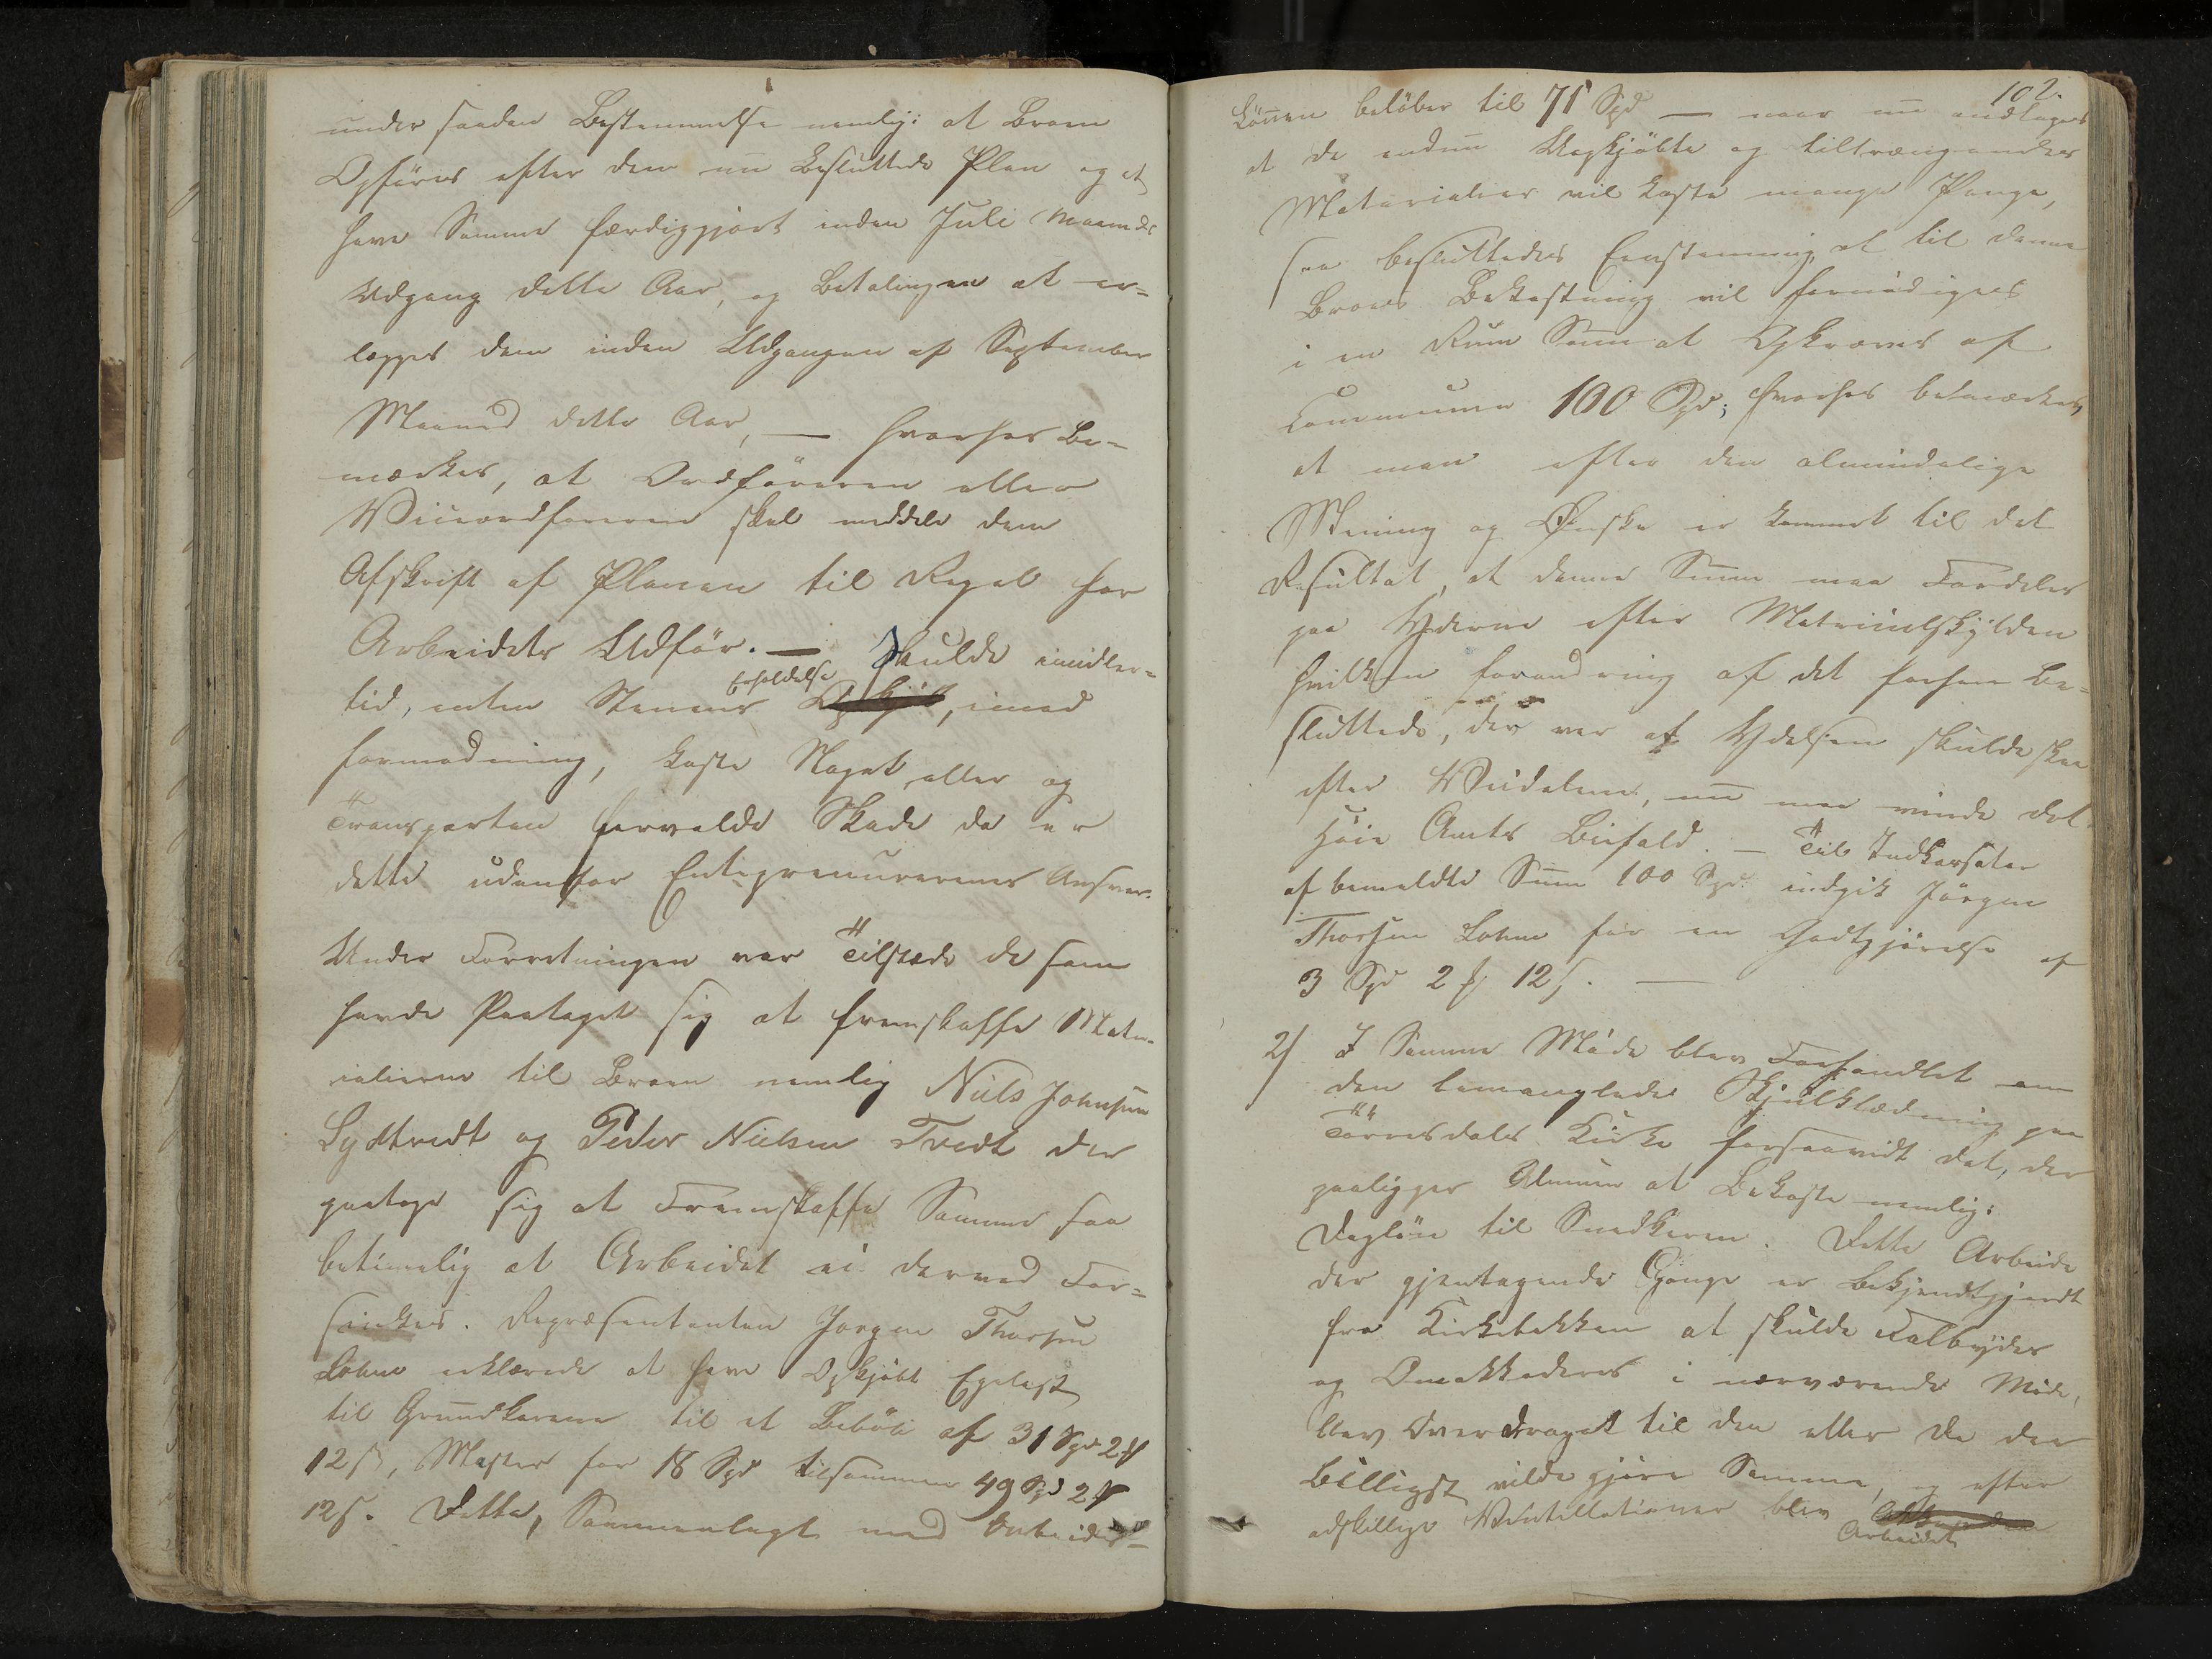 under saadan Bestemmelse nemlig: at Broen
Opføres efter den nu Besluttede Plan og at
have Samme færdiggjort inden Juli Maaneds
Udgang dette Aar, og Betalingen at er=
lægges dem inden Udgangen af September
Maaned dette Aar, — hvorhos Be=
mærkes, at Ordføreren eller
Viceordføreren skal meddele dem
Afskrift af Planen til Regel for
Arbeidets Udför. — Skulde imidler=
tid, enten Stenens Erholdelse, imod
formodning, koste Noget eller og
Transporten forvolde Skade da er
dette udenfor Entreprenurerenes Ansvar.
Under Forretningen var Tilstede de som
havde Paataget sig at fremskaffe Mate=
rialierne til Broen nemlig Niels Johnsen
Lydtvedt og Peder Nielsen Tvedt der
paatoge sig at Fremskaffe Samme saa
betimelig at Arbeidet ei derved For=
sinkes. Repræsentanten Jørgen Thorsen
Lohne erklærede at have Opkjöbt Egelast
til Grundkarene til et Belöb af 31 Spd 2 #
12 ß, Master for 18 Spd tilsammen 49 Spd 2 #
12 ß. Dette, Sammenlagt med Arbeids=
102.
Lönnen belöber til 71 Spd — naar nu antages
at de endnu Uopkjöbte og tiltrængendes
Materialier vil koste mange Penge,
saa besluttedes Eenstemmig at til denne
Broes Bekostning vil fornødiges
i en Rum Sum at Opkræves af
Communen 100 Spd; hvorhos bemærkes,
at man efter den almindelige
Mening og Ønske er kommet til det
Resultat, at denne Sum maa Fordeles
paa Yderne efter Matriculskylden
hvilken forandring af det forhen Be=
sluttede, der var at Ydelsen skulde skee
efter Veidelene, nu maa vinde det
Høie Amts Biefald. — Til Indkasserer
af bemeldte Sum 100 Spd. indgik Jörgen
Thorsen Lohne for en Godtgjörelse af
3 Spd 2 # 12 ß. —
2/ I Samme Möde blev Forhandlet om
den bemanglede Skjulklædning paa
Törresdals Kirke forsaavidt det, der
paaligger Almuen at Bekoste nemlig:
Daglön til Snedkeren. Dette Arbeide
der gjentagende Gange er bekjendtgjordt
fra Kirkebakken at skulde Falbydes
og Onakkederes i nærværende Möde,
blev Overdraget til den eller de der
billigst vilde gjøre Samme, og efter
adskillige Ventillationer blev Arbeidet